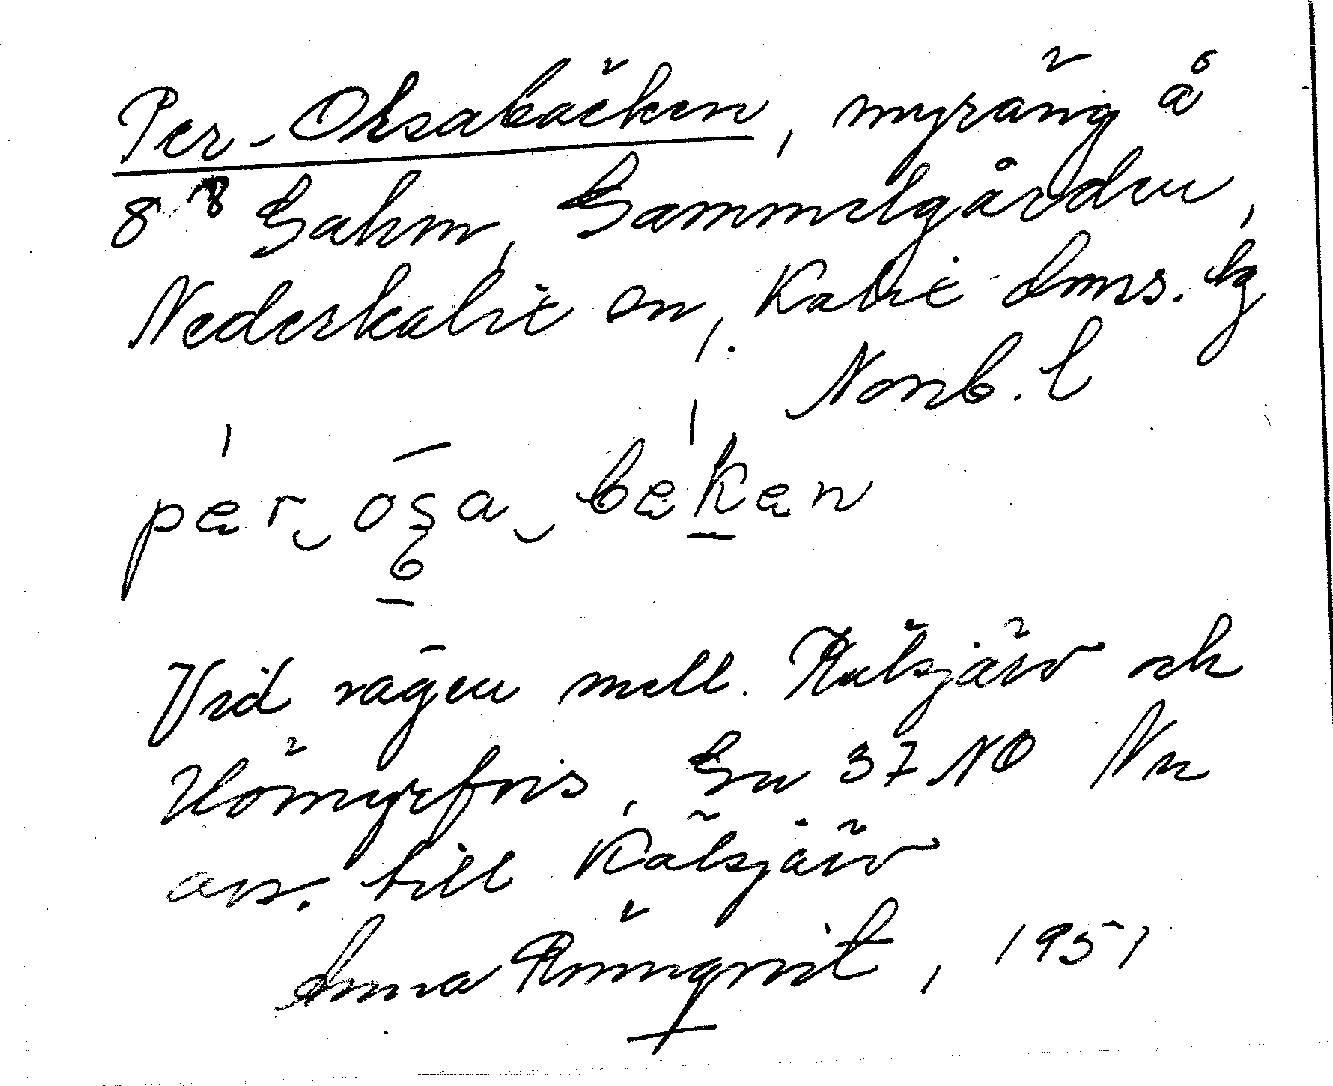 Per-Oksabäcken, myräng å
8 Sahm, Gammelgården,
Nederkalix sn, Kalix dms. lg
Norrb. l
pær osa bækæn
Vid vägen mell. Kälsjärv och
Hömyrfors, Gu 37 NO Nu
avs. till Kälsjärv
Anna Rönnqvist, 1951